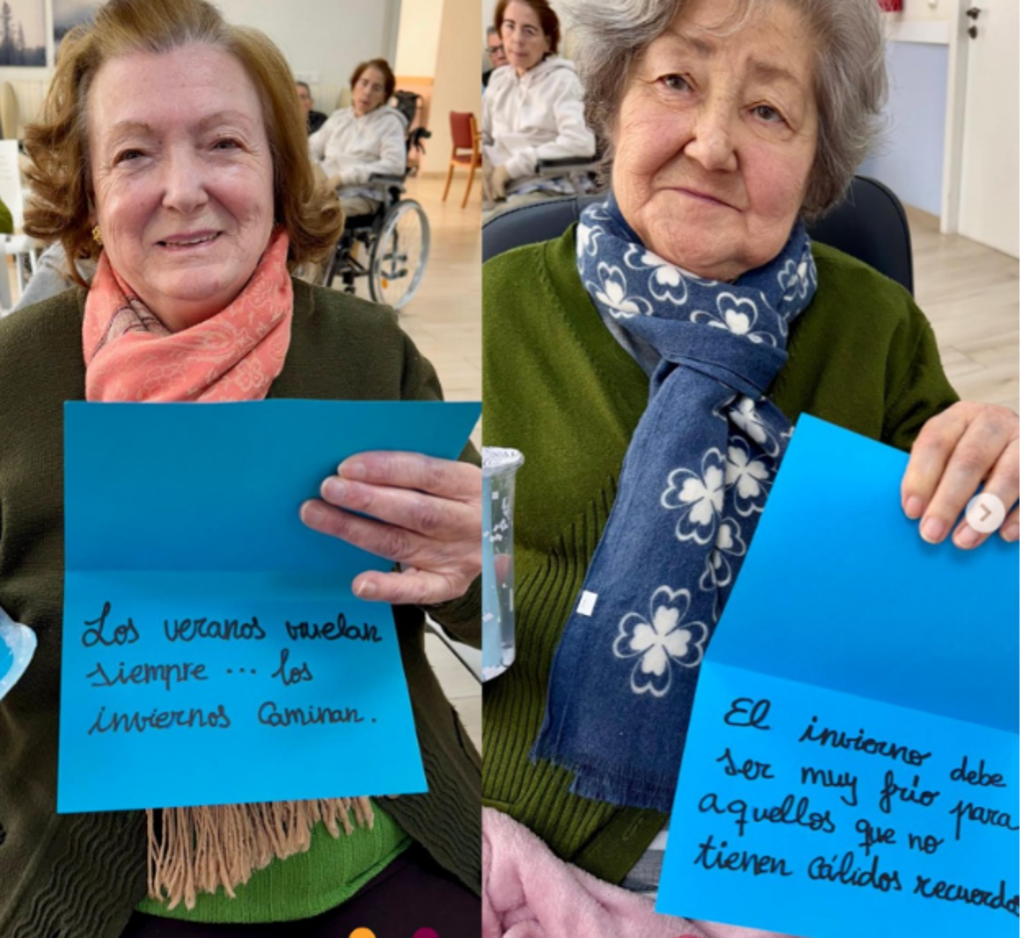 Los veranos vuelan
siempre ... los
inviernos caminan.
El invierno debe
ser muy frío para
aquellos que no
tienen cálidos recuerdo